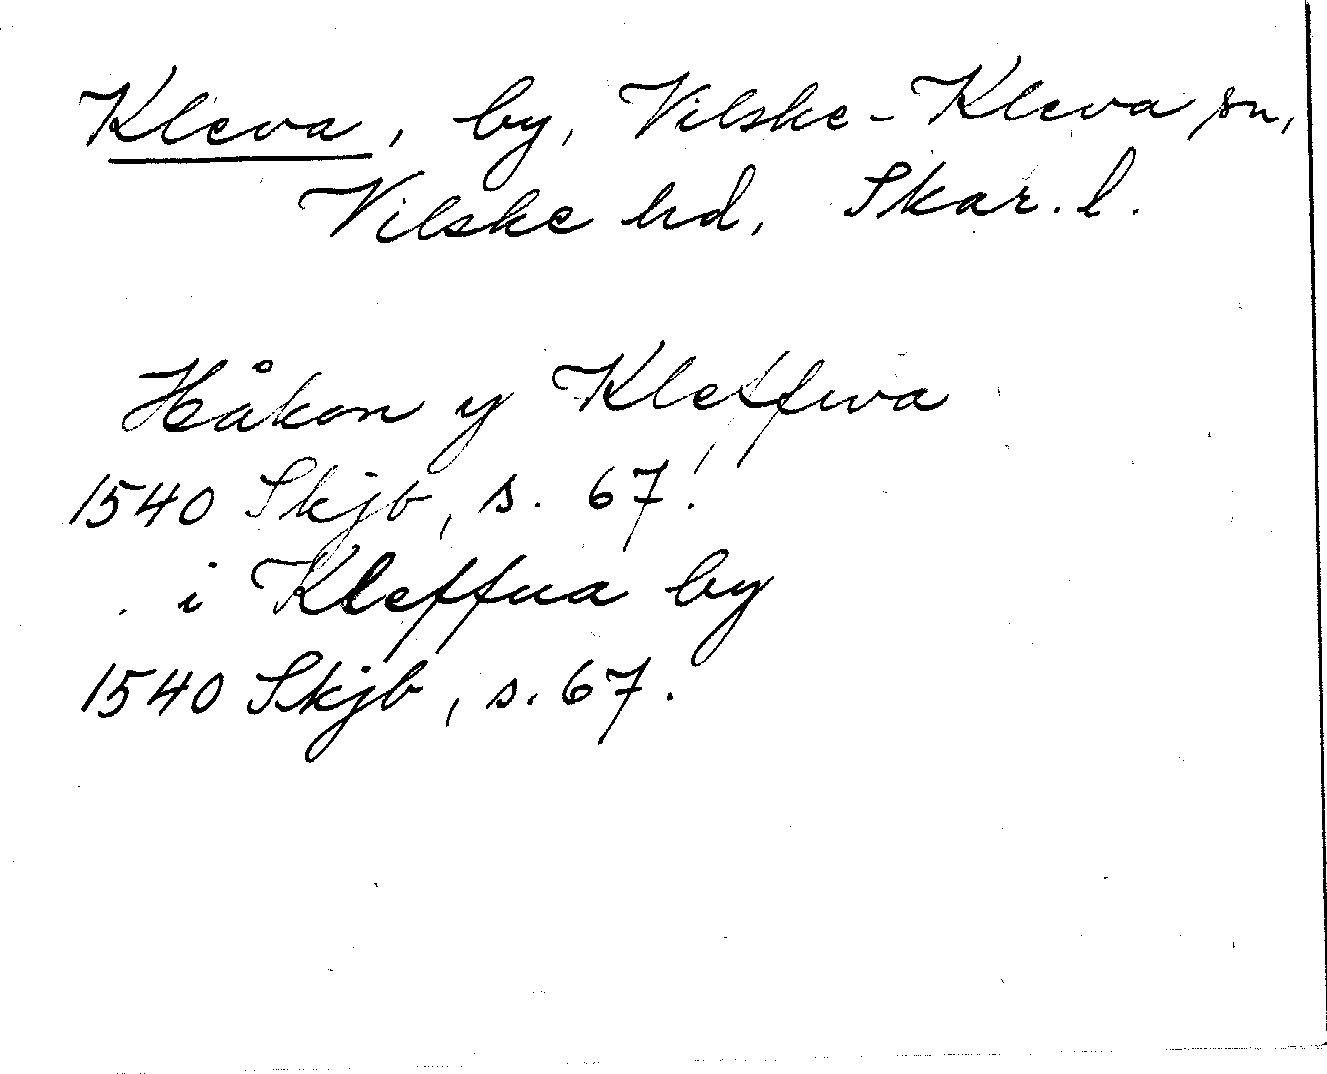 Kleva, by, Vilske-Kleva sn,
Vilske hd, Skar. l.
Håkon y Kleffwa
1540 Skjb, s. 67.
i Kleffua by
1540 Skjb, s. 67.